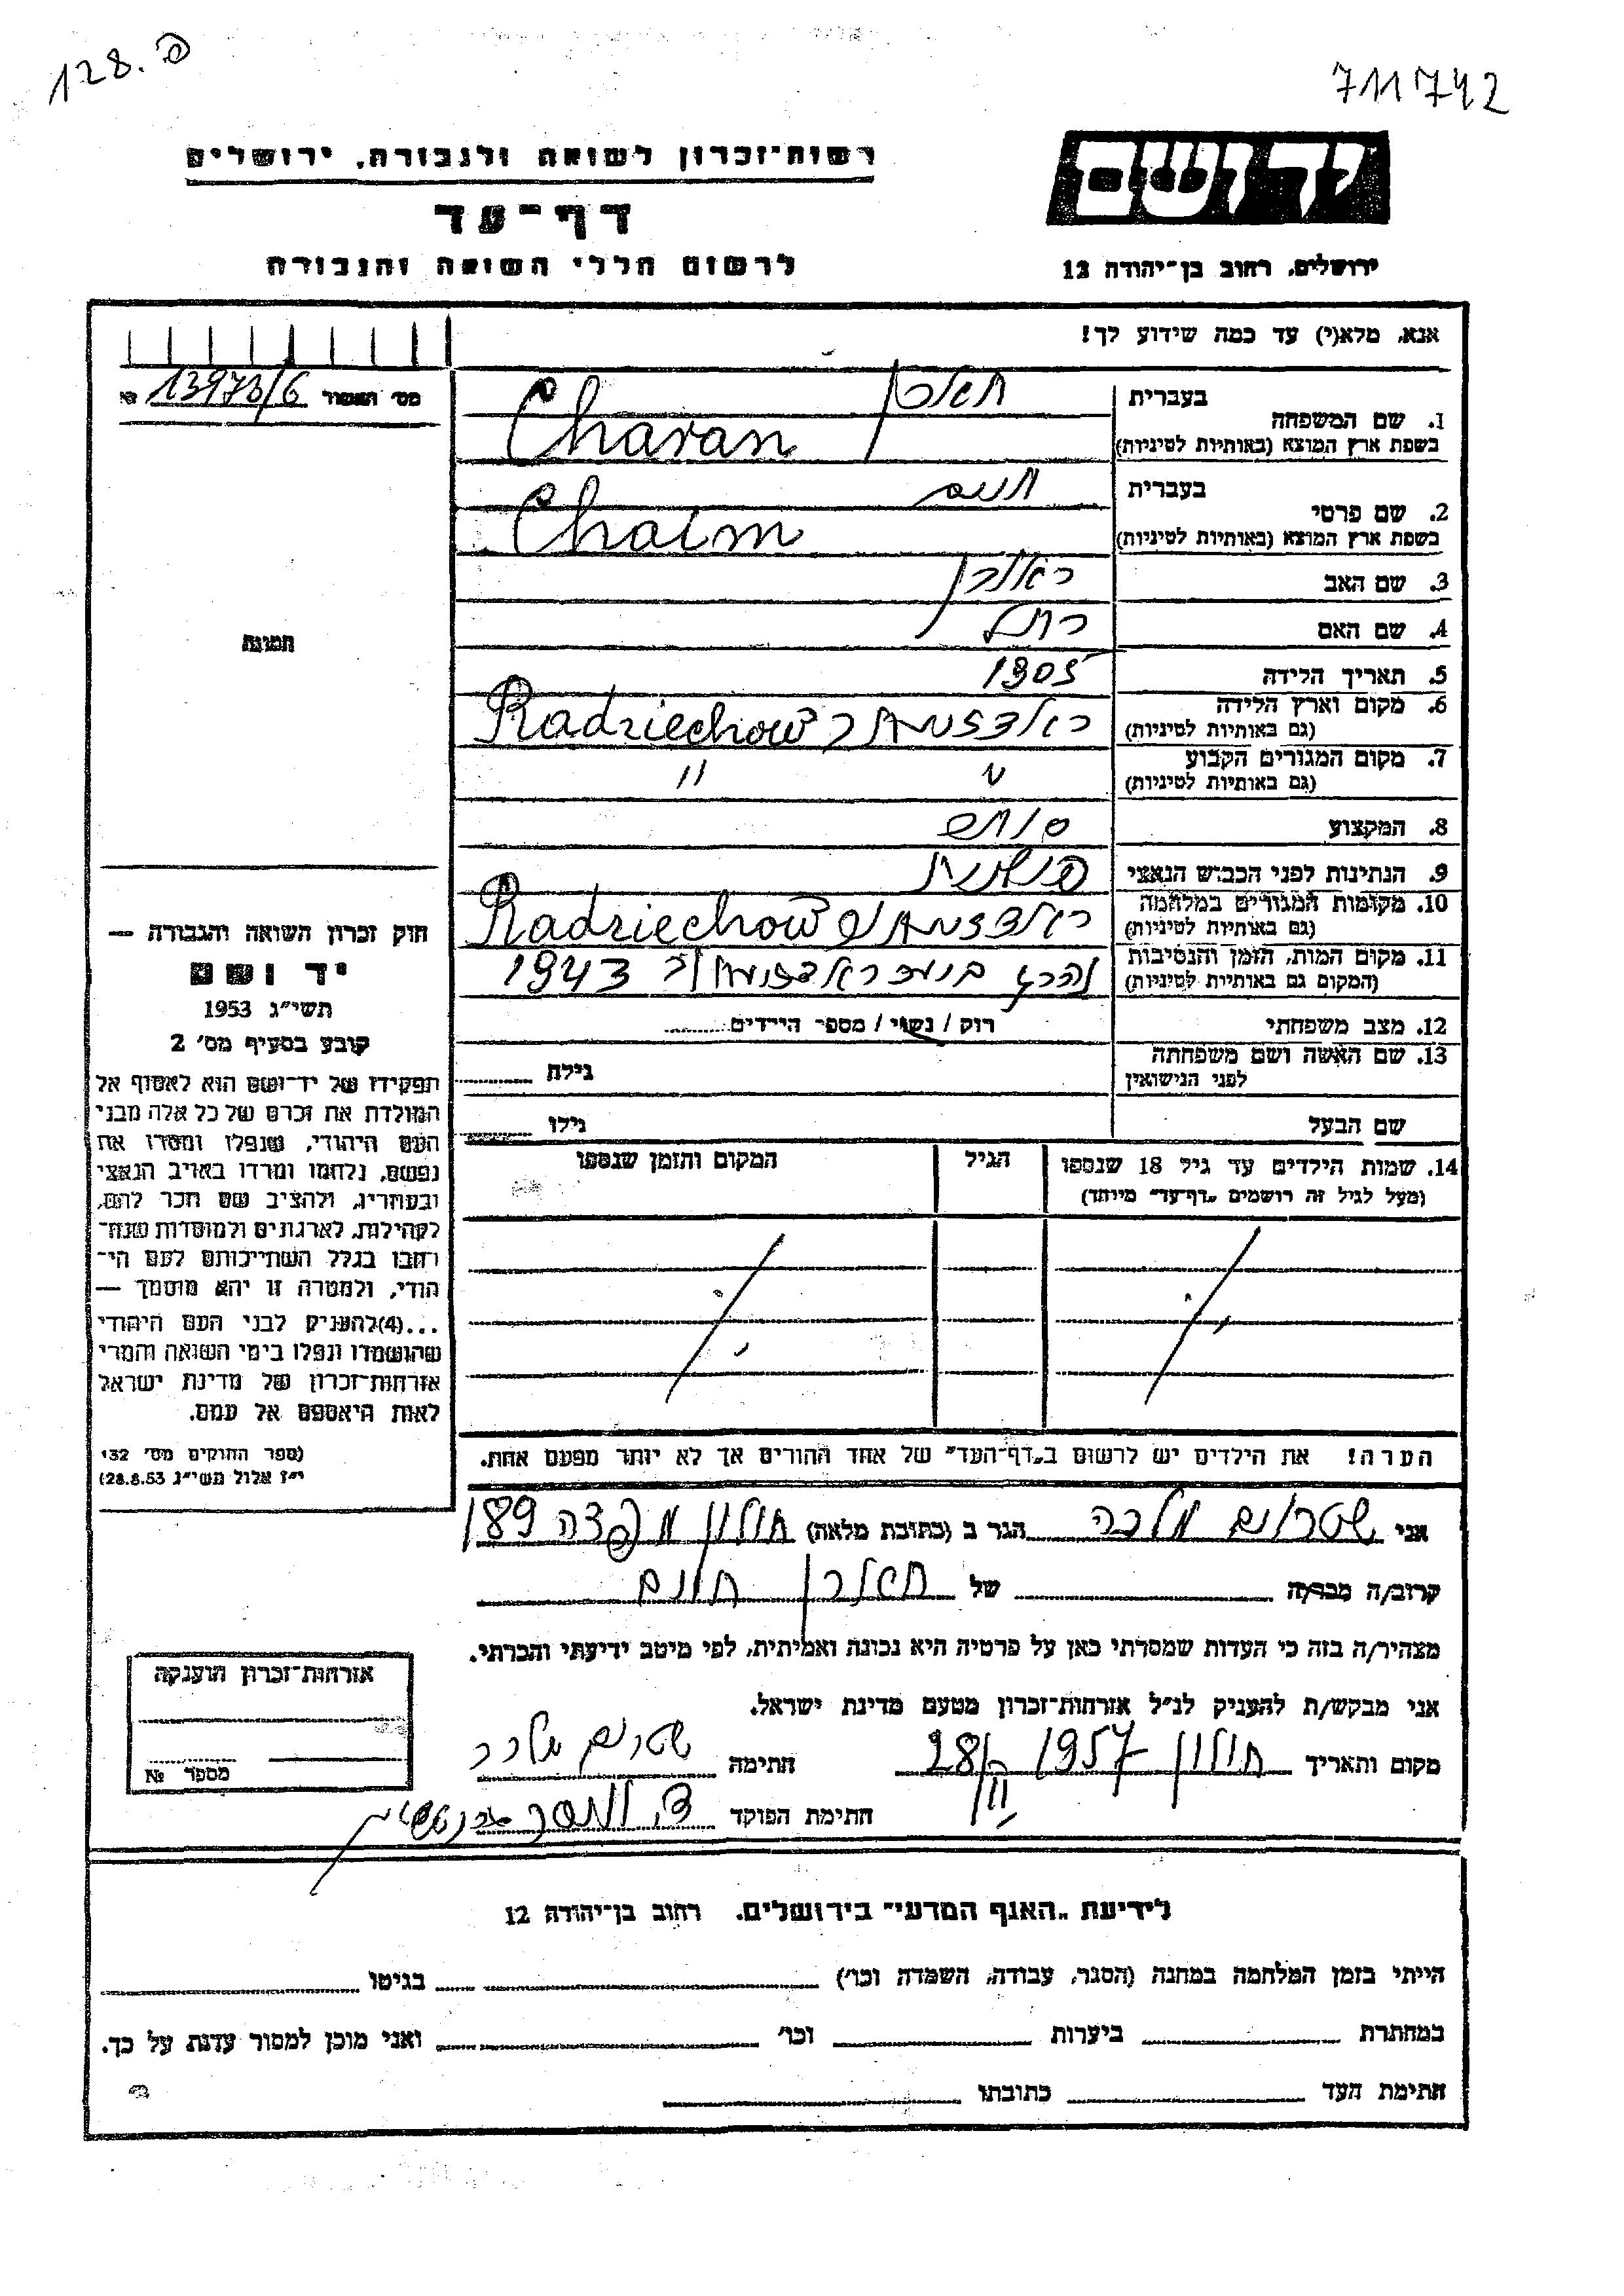 128. פ
711742
יד ושם
רשות־זכרון לשואה ולגבורה, ירושלים
דף־עד
לרשום חללי השואה והגבורה
ירושלים, רחוב בן־יהודה 12
אנא, מלא(י) עד כמה שידוע לך!
מס׳ האשור № 13973/6
1. שם המשפחה בעברית
בשפת ארץ המוצא (באותיות לטיניות) Charan
2. שם פרטי בעברית חיים
בשפת ארץ המוצא (באותיות לטיניות) Chaim
3. שם האב
4. שם האם רחל
5. תאריך הלידה 1905
6. מקום וארץ הלידה
(גם באותיות לטיניות) Radziechow
7. מקום המגורים הקבוע " "
(גם באותיות לטיניות)
8. המקצוע סוחר
9. הנתינות לפני הכבוש הנאצי פולנית
10. מקומות המגורים במלחמה
(גם באותיות לטיניות) Radziechow
11. מקום המות, הזמן והנסיבות 1943
(המקום גם באותיות לטיניות)
12. מצב משפחתי רוק / נשוי / מספר הילדים
13. שם האשה ושם משפחתה גילה
לפני הנישואין
שם הבעל גילו
14. שמות הילדים עד גיל 18 שנספו הגיל המקום והזמן שנספו
(מעל לגיל זה רושמים „דף־עד" מיוחד)
הערה! את הילדים יש לרשום ב„דף־העד" של אחד ההורים אך לא יותר מפעם אחת.
תמונה
חוק זכרון השואה והגבורה —
יד ושם
תשי״ג 1953
קובע בסעיף מס׳ 2
תפקידו של יד־ושם הוא לאסוף אל
המולדת את זכרם של כל אלה מבני
העם היהודי, שנפלו ומסרו את
נפשם, נלחמו ומרדו באויב הנאצי
ובעוזריו, ולהציב שם וזכר להם,
לקהילות, לארגונים ולמוסדות שנח־
רבו בגלל השתייכותם לעם הי־
הודי, ולמטרה זו יהא מוסמך —
...(4)להעניק לבני העם היהודי
שהושמדו ונפלו בימי השואה והמרי
אזרחות־זכרון של מדינת ישראל
לאות היאספם אל עמם.
(ספר החוקים מס׳ 132
י״ז אלול תשי״ג 28.8.53)
אני שטרום מלכה הגר ב (כתובת מלאה) חולון 189
קרוב/ה מכר/ה של חיים
מצהיר/ה בזה כי העדות שמסרתי כאן על פרטיה היא נכונה ואמיתית, לפי מיטב ידיעתי והכרתי.
אני מבקש/ת להעניק לנ״ל אזרחות־זכרון מטעם מדינת ישראל.
מקום ותאריך חולון 1957 28/ חתימה שטרום מלכה
חתימת הפוקד
אזרחות־זכרון הוענקה
מספר №
לידיעת „האגף המדעי" בירושלים, רחוב בן־יהודה 12
הייתי בזמן המלחמה במחנה (הסגר, עבודה, השמדה וכו׳) בגיטו
במחתרת ביערות וכו׳ ואני מוכן למסור עדות על כך.
חתימת העד כתובתו